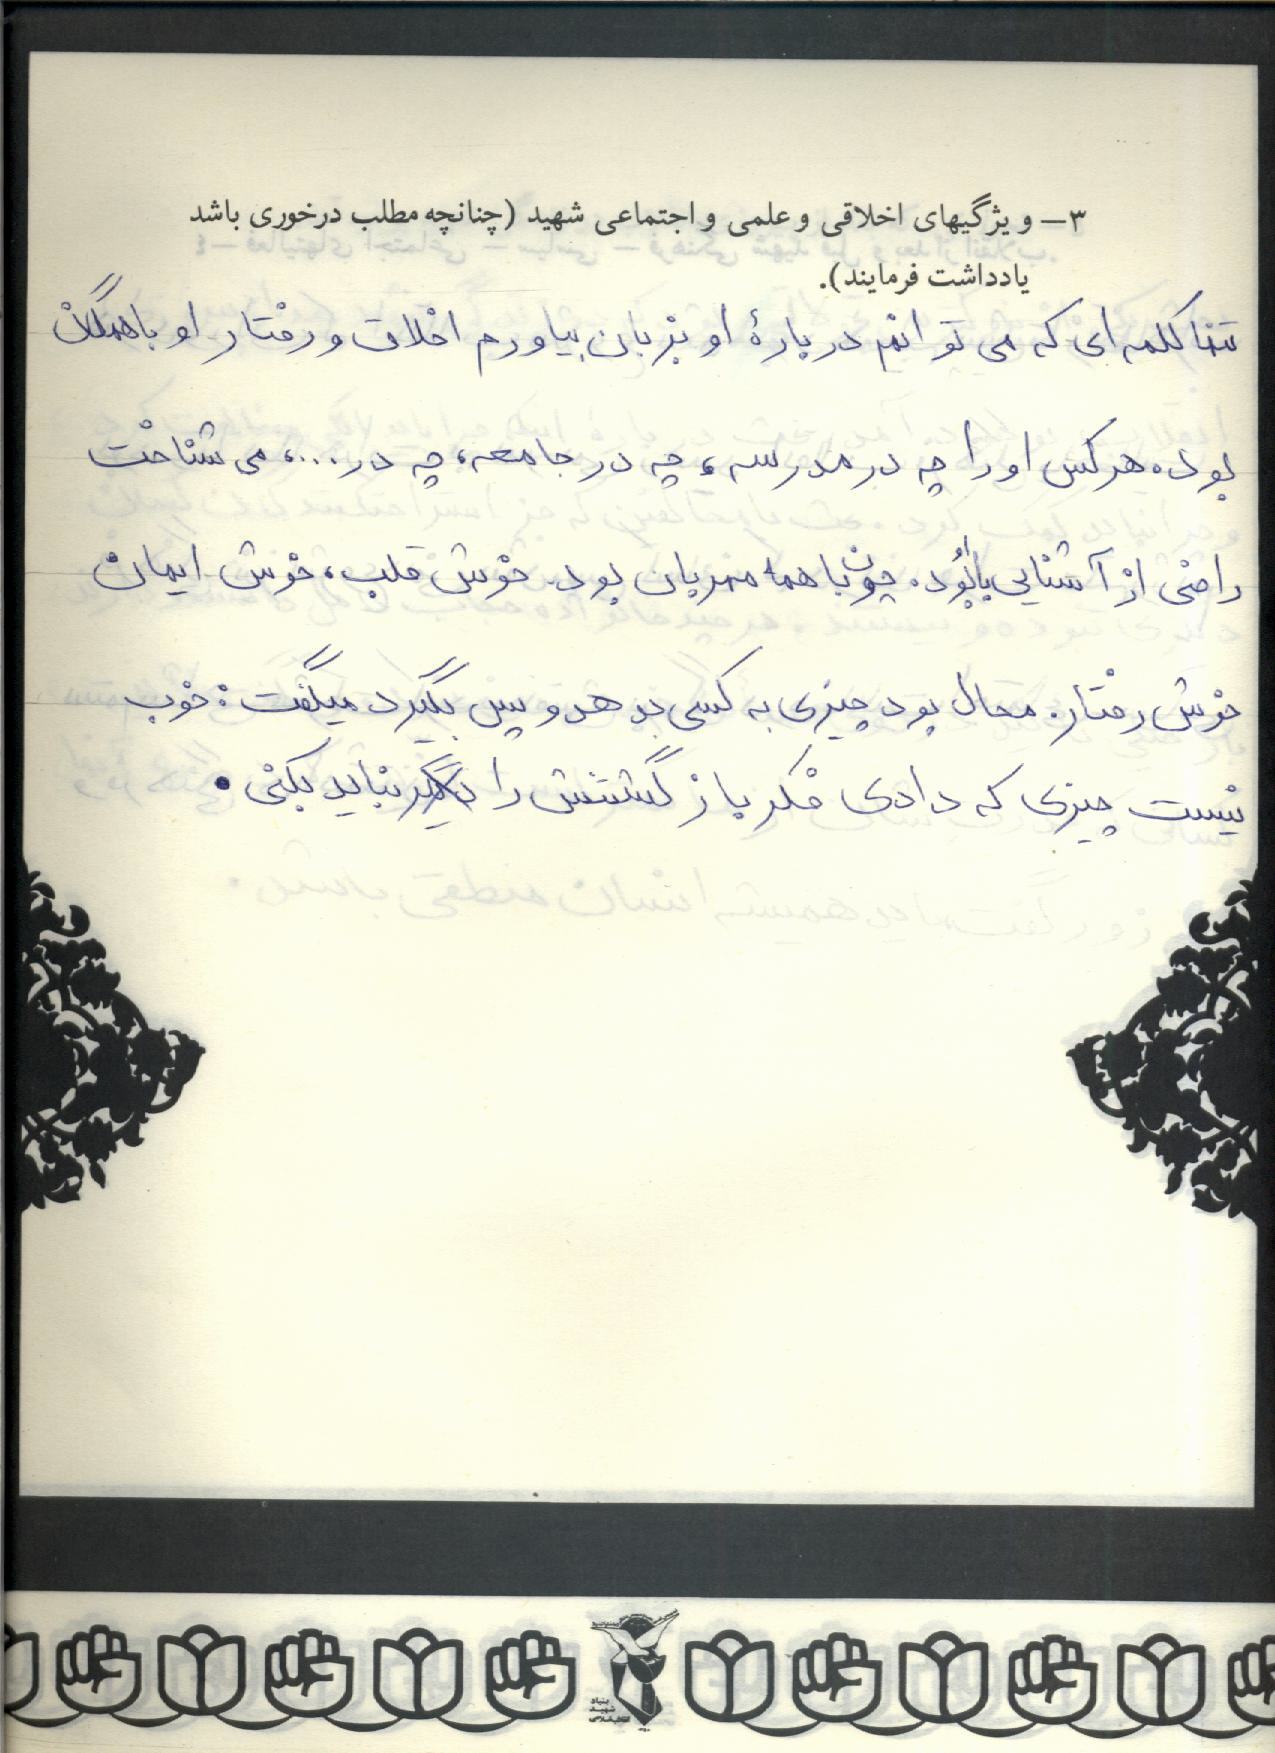 ۳– ویژگیهای اخلاقی و علمی و اجتماعی شهید (چنانچه مطلب درخوری باشد
یادداشت فرمایند).
تنها کلمه ای که می توانم درباره او بزبان بیاورم اخلاق و رفتار او با همگان
بود. هرکس او را چه در مدرسه، چه در جامعه، چه در...، می شناخت
راضی از آشنایی با او بود. چون با همه مهربان بود. خوش قلب، خوش ایمان
خوش رفتار. محال بود چیزی به کسی بدهد و پس بگیرد میگفت: خوب
نیست چیزی که دادی فکر باز گشتنش را نباید بکنی.
بنیاد
شهید